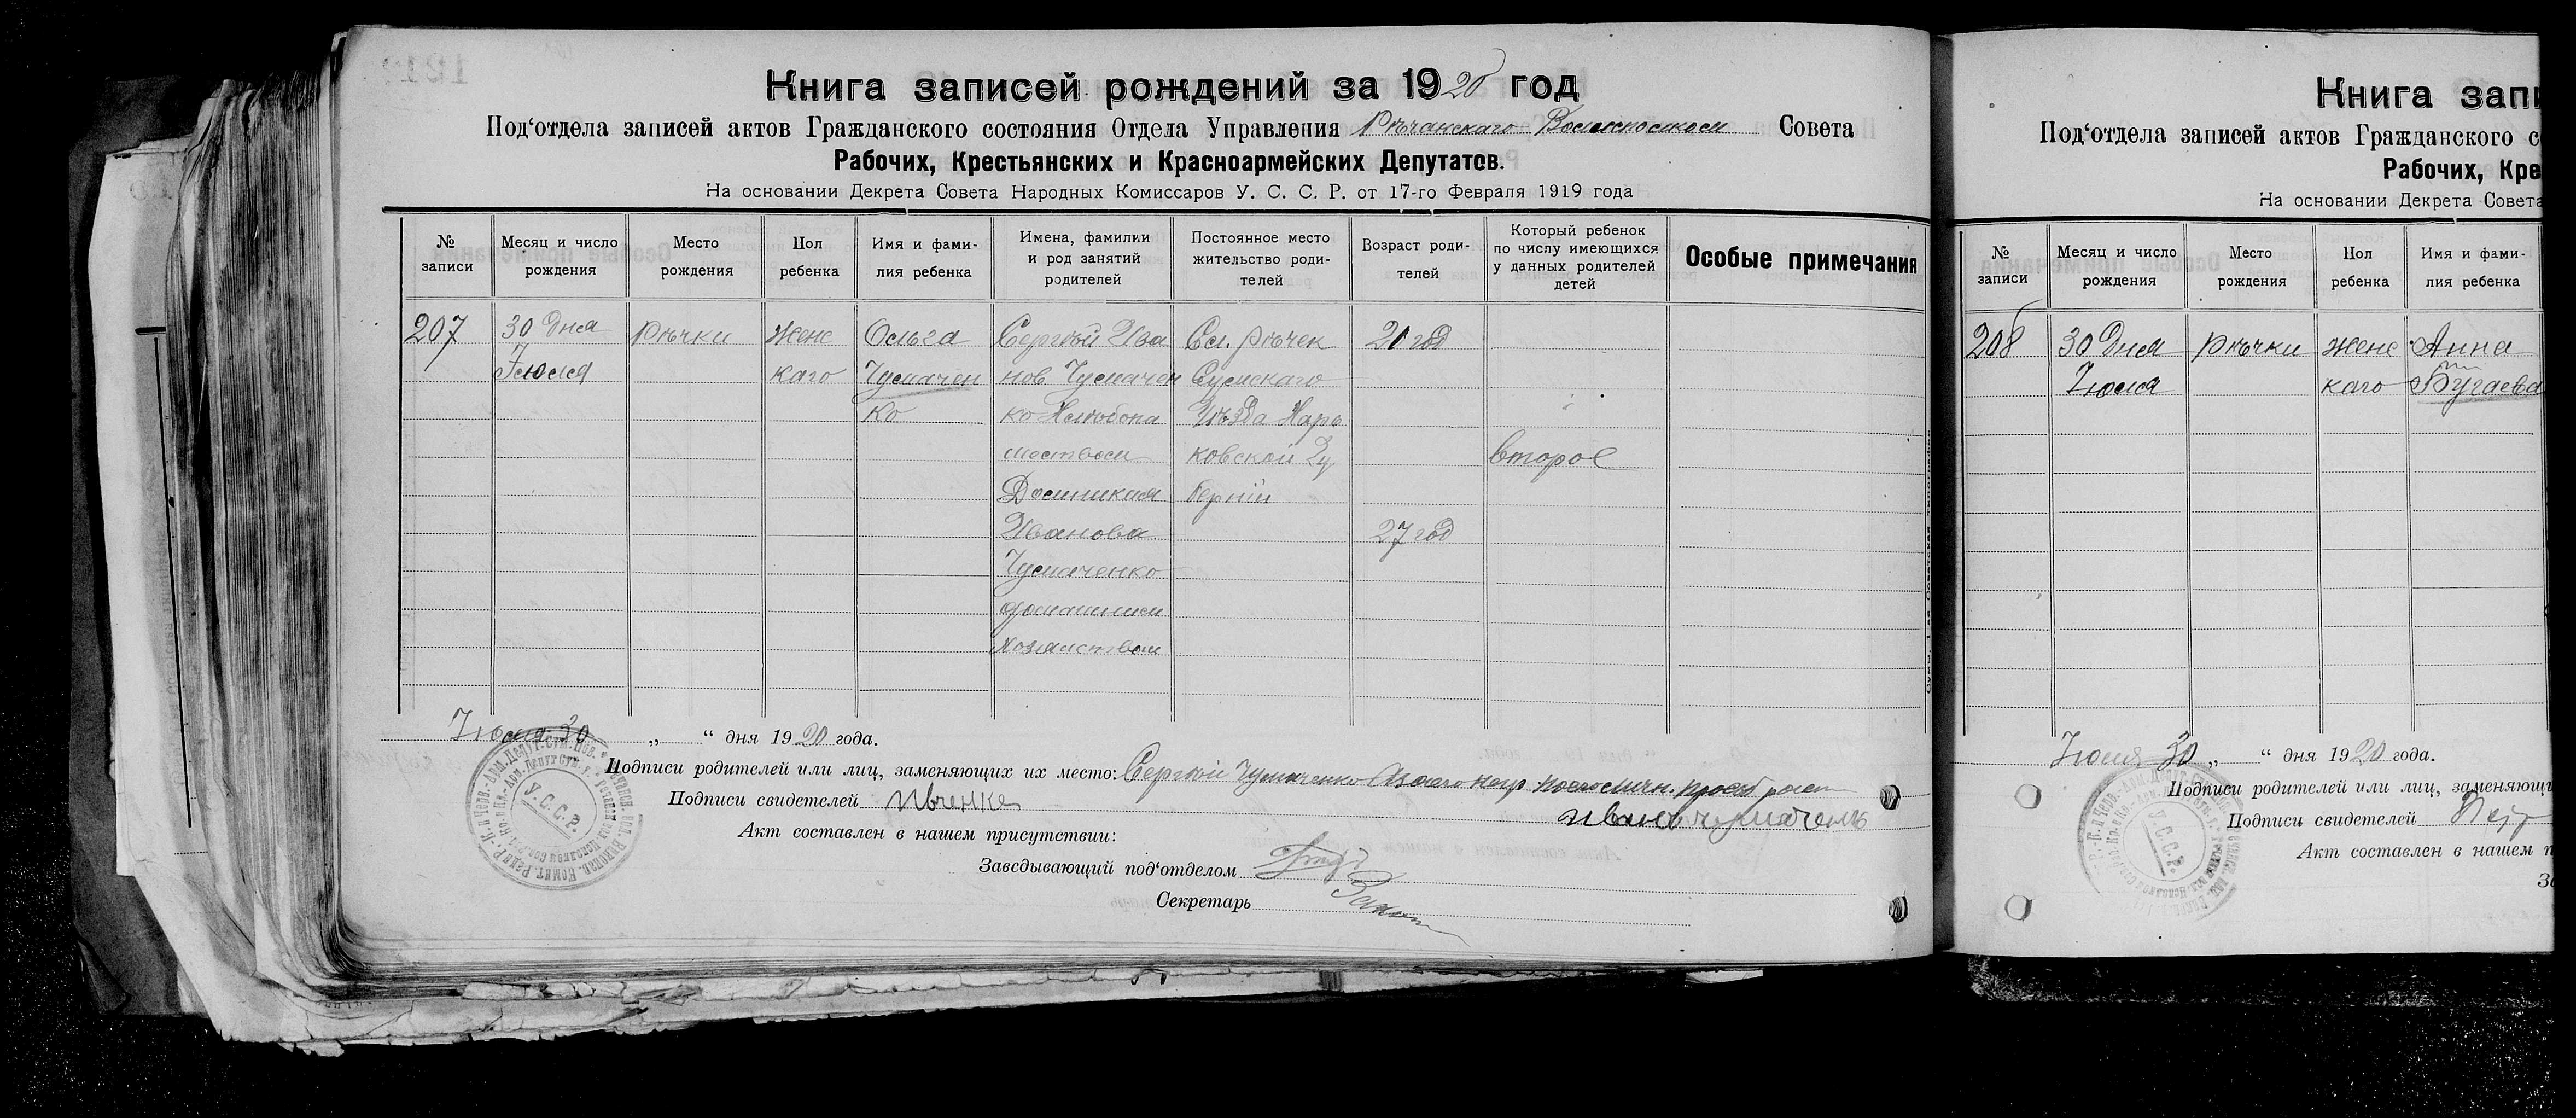 Книга записей рождений за 1920 год
Под‘отдела записей актов Гражданского состояния Отдела Управления Рѣчанскаго Совета
Рабочих, Крестьянских и Красноармейских Депутатов.
На основании Декрета Совета Народных Комиссаров У. С. С. Р. от 17-го Февраля 1919 года
№ записи
Месяц и число рождения
Место рождения
Пол ребенка
Имя и фами-лия ребенка
Имена, фамилии и род занятий родителей
Постоянное место жительство роди-телей
Возраст роди-телей
Который ребенок по числу имеющихся у данных родителей детей
Особые примечания
207 30 Дня Рѣчки Женс Ольга Сергѣй Ива Сл. Рѣчек 21 год
Июля каго Чумачен нов Чумачен Сумскаго
ко ко Уѣзда Харь
ковской Гу второе
Домникия берніи
Иванова 27 год
Чумаченко
домашним
хозяйством
Июля 30 „ “ дня 1920 года.
Подписи родителей или лиц, заменяющих их место: Сергѣй Чумаченко
Подписи свидетелей Ивченко Иванъ Чумаченко
Акт составлен в нашем присутствии:
Заведывающий под‘отделом
Секретарь
У.С.С.Р.
Книга запи
Под‘отдела записей актов Гражданского со
Рабочих, Кре
На основании Декрета Совета
№ записи
Месяц и число рождения
Место рождения
Пол ребенка
Имя и фами-лия ребенка
208 30 Дня Рѣчки Женс Анна
Июля каго Бугаева
Июля 30 „ “ дня 1920 года.
Подписи родителей или лиц, заменяющи
Подписи свидетелей Петр
Акт составлен в нашем п
За
У.С.С.Р.